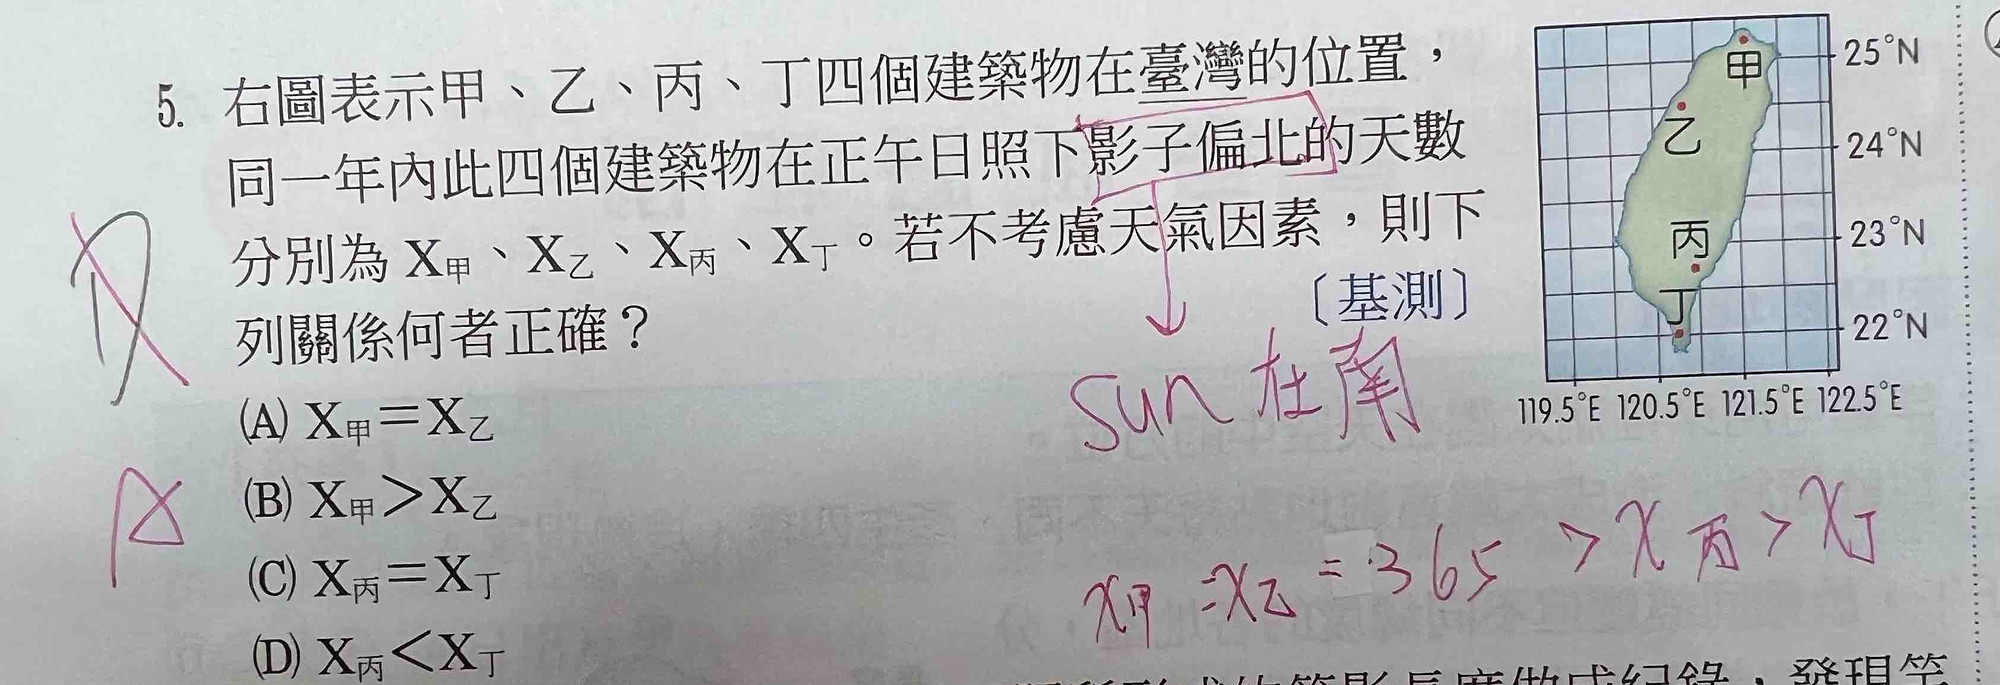 5. 右圖表示甲、乙、丙、丁四個建築物在臺灣的位置，
同一年內此四個建築物在正午日照下影子偏北的天數
分別為 X甲、X乙、X丙、X丁。若不考慮天氣因素，則下
列關係何者正確？
〔基測〕
(A) X甲＝X乙
(B) X甲＞X乙
(C) X丙＝X丁
(D) X丙＜X丁
sun 在南
X甲 = X乙 = 365 > X丙 > X丁
A
甲
乙
丙
丁
25°N
24°N
23°N
22°N
119.5°E 120.5°E 121.5°E 122.5°E